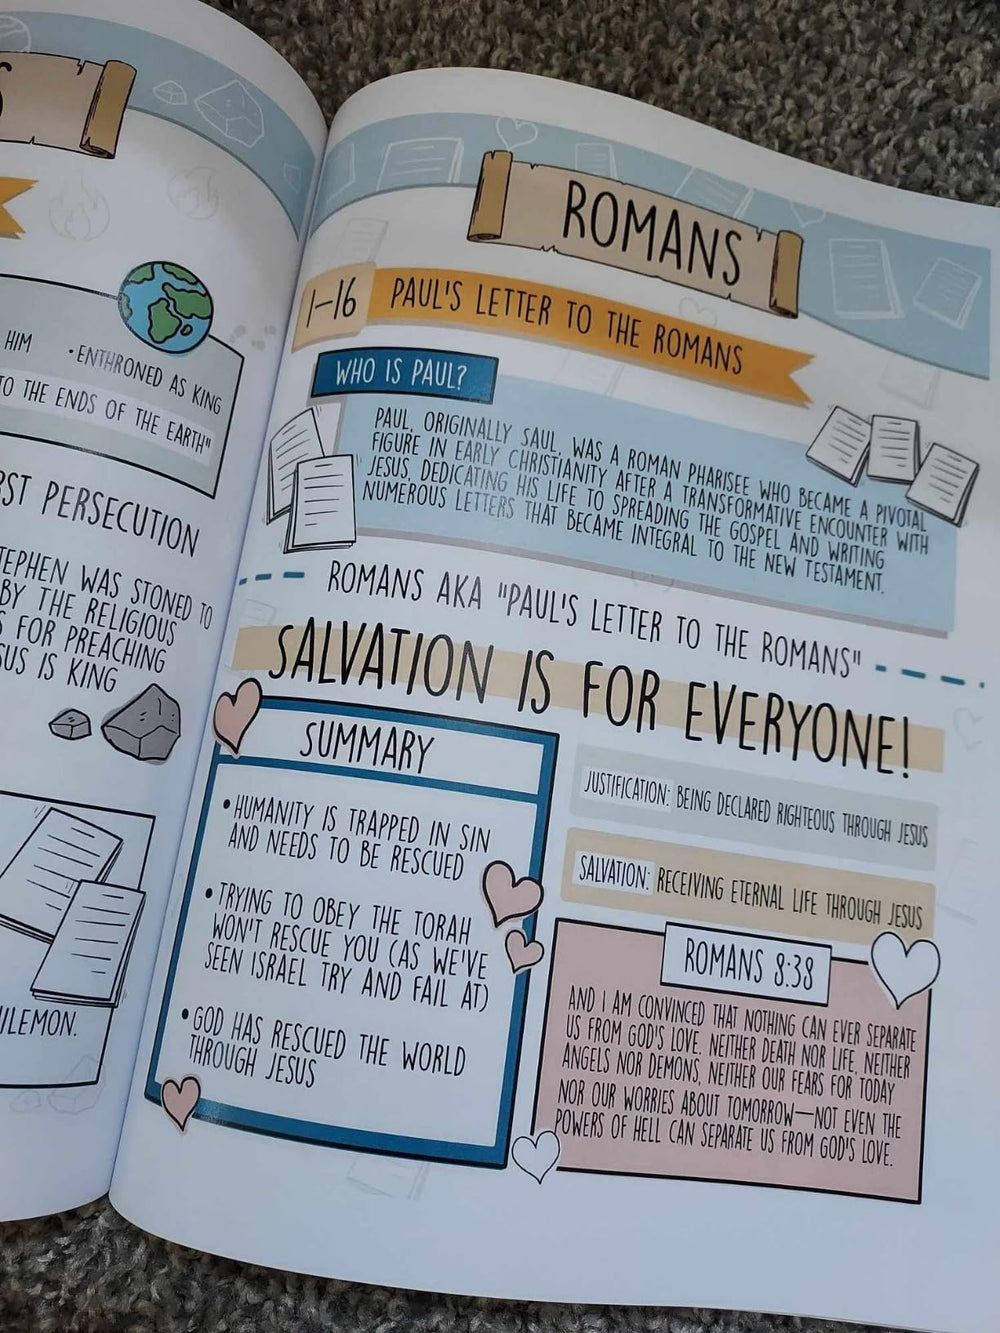 S
HIM •ENTHRONED AS KING
TO THE ENDS OF THE EARTH"
RST PERSECUTION
TEPHEN WAS STONED TO
BY THE RELIGIOUS
S FOR PREACHING
SUS IS KING
ILEMON.
ROMANS
1-16 PAUL'S LETTER TO THE ROMANS
WHO IS PAUL?
PAUL, ORIGINALLY SAUL, WAS A ROMAN PHARISEE WHO BECAME A PIVOTAL
FIGURE IN EARLY CHRISTIANITY AFTER A TRANSFORMATIVE ENCOUNTER WITH
JESUS, DEDICATING HIS LIFE TO SPREADING THE GOSPEL AND WRITING
NUMEROUS LETTERS THAT BECAME INTEGRAL TO THE NEW TESTAMENT.
ROMANS AKA "PAUL'S LETTER TO THE ROMANS"
SALVATION IS FOR EVERYONE!
SUMMARY
•HUMANITY IS TRAPPED IN SIN
AND NEEDS TO BE RESCUED
•TRYING TO OBEY THE TORAH
WON'T RESCUE YOU (AS WE'VE
SEEN ISRAEL TRY AND FAIL AT)
•GOD HAS RESCUED THE WORLD
THROUGH JESUS
JUSTIFICATION: BEING DECLARED RIGHTEOUS THROUGH JESUS
SALVATION: RECEIVING ETERNAL LIFE THROUGH JESUS
ROMANS 8:38
AND I AM CONVINCED THAT NOTHING CAN EVER SEPARATE
US FROM GOD'S LOVE. NEITHER DEATH NOR LIFE, NEITHER
ANGELS NOR DEMONS, NEITHER OUR FEARS FOR TODAY
NOR OUR WORRIES ABOUT TOMORROW—NOT EVEN THE
POWERS OF HELL CAN SEPARATE US FROM GOD'S LOVE.